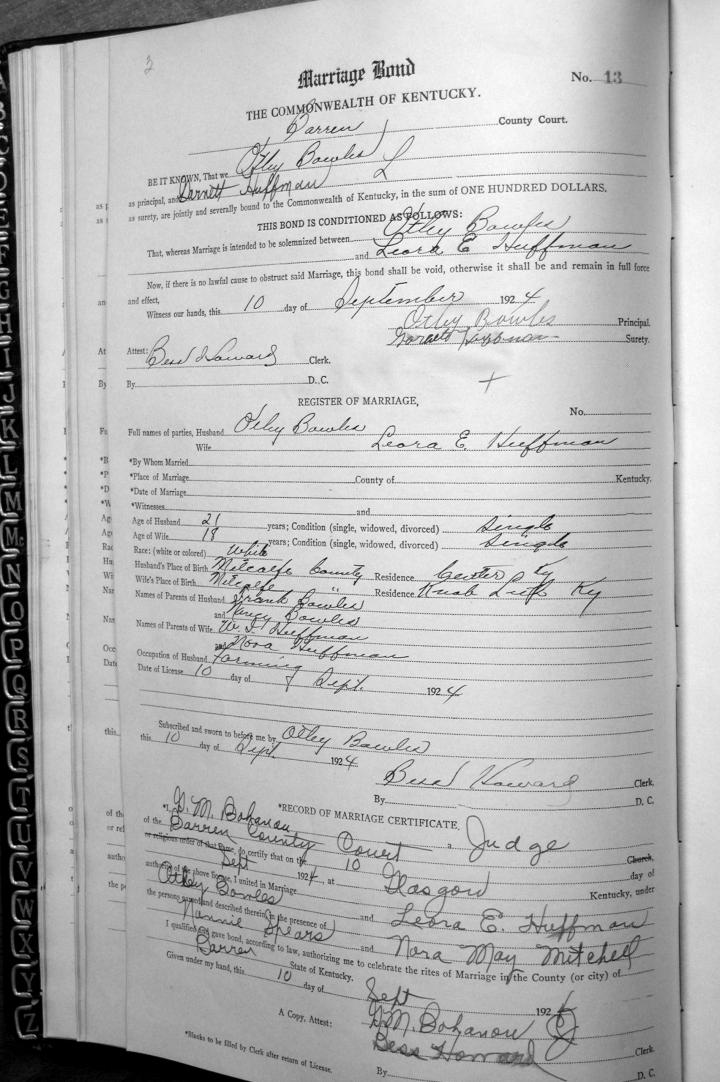 3
Marriage Bond
No. 13
THE COMMONWEALTH OF KENTUCKY.
Barren County Court.
BE IT KNOWN, That we Otley Bowles
as principal, and Garnett Huffman
as surety, are jointly and severally bound to the Commonwealth of Kentucky, in the sum of ONE HUNDRED DOLLARS.
THIS BOND IS CONDITIONED AS FOLLOWS:
That, whereas Marriage is intended to be solemnized between Otley Bowles
and Leora E Huffman
Now, if there is no lawful cause to obstruct said Marriage, this bond shall be void, otherwise it shall be and remain in full force
and effect,
Witness our hands, this 10 day of September 1924
Otley Bowles Principal.
Garnett Huffman Surety.
Attest: Bess Howard Clerk.
By D. C.
REGISTER OF MARRIAGE,
No.
Full names of parties, Husband Otley Bowles
Wife Leora E. Huffman
*By Whom Married
*Place of Marriage County of Kentucky.
*Date of Marriage
*Witnesses and
Age of Husband 21 years; Condition (single, widowed, divorced) Single
Age of Wife 18 years; Condition (single, widowed, divorced) Single
Race: (white or colored) White
Husband's Place of Birth Metcalfe County Residence Center Ky
Wife's Place of Birth Metcalfe " Residence Knob Lick Ky
Names of Parents of Husband Frank Bowles
and Nancy Bowles
Names of Parents of Wife W. T. Huffman
and Nora Huffman
Occupation of Husband Farming
Date of License 10 day of Sept. 1924
Subscribed and sworn to before me by Otley Bowles
this 10 day of Sept. 1924
Bess Howard Clerk.
By D. C.
*RECORD OF MARRIAGE CERTIFICATE.
*I, G. M. Bohanon a Judge
of the Barren County Court Church,
or religious order of that name, do certify that on the 10 day of
Sept 1924, at Glasgow Kentucky, under
authority of the above license, I united in Marriage
Otley Bowles and Leora E. Huffman
the persons named and described therein, in the presence of
Nannie Spears and Nora May Mitchell
I qualified and gave bond, according to law, authorizing me to celebrate the rites of Marriage in the County (or city) of
Barren State of Kentucky.
Given under my hand, this 10 day of Sept 1924
G. M. Bohanon
A Copy, Attest: Bess Howard Clerk.
By D. C.
*Blanks to be filled by Clerk after return of License.